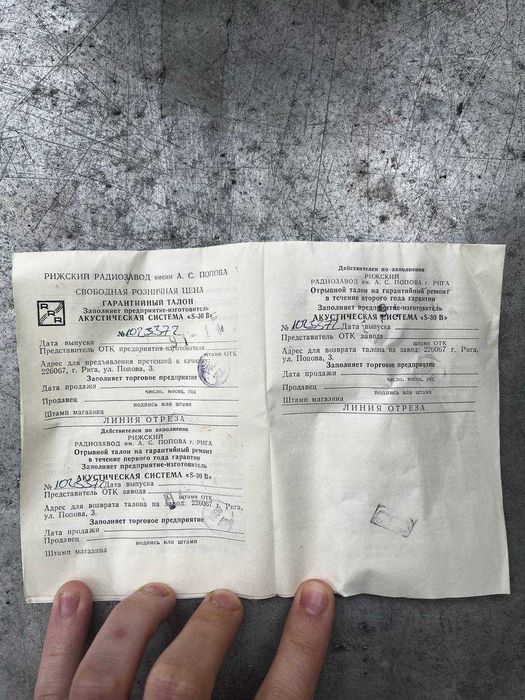 РИЖСКИЙ РАДИОЗАВОД имени А. С. ПОПОВА
СВОБОДНАЯ РОЗНИЧНАЯ ЦЕНА
RRR
ГАРАНТИЙНЫЙ ТАЛОН
Заполняет предприятие-изготовитель
АКУСТИЧЕСКАЯ СИСТЕМА «S-30 B»
№ 1023372
Дата выпуска
Представитель ОТК предприятия-изготовителя
штамп ОТК
Адрес для предъявления претензий к качеству:
226067, г. Рига, ул. Попова, 3.
Заполняет торговое предприятие
Дата продажи
число, месяц, год
Продавец
подпись или штамп
Штамп магазина
ЛИНИЯ ОТРЕЗА
Действителен по заполнении
РИЖСКИЙ
РАДИОЗАВОД им. А. С. ПОПОВА г. РИГА
Отрывной талон на гарантийный ремонт
в течение первого года гарантии
Заполняет предприятие-изготовитель
АКУСТИЧЕСКАЯ СИСТЕМА «S-30 B»
№ Дата выпуска
Представитель ОТК завода
штамп ОТК
Адрес для возврата талона на завод: 226067 г. Рига,
ул. Попова, 3.
Заполняет торговое предприятие
Дата продажи
Продавец
подпись или штамп
Штамп магазина
Действителен по заполнении
РИЖСКИЙ
РАДИОЗАВОД им. А. С. ПОПОВА г. РИГА
Отрывной талон на гарантийный ремонт
в течение второго года гарантии
Заполняет предприятие-изготовитель
АКУСТИЧЕСКАЯ СИСТЕМА «S-30 B»
№ 1023372 Дата выпуска
Представитель ОТК завода
штамп ОТК
Адрес для возврата талона на завод: 226067 г. Рига,
ул. Попова, 3.
Заполняет торговое предприятие
Дата продажи
число, месяц, год
Продавец
подпись или штамп
Штамп магазина
ЛИНИЯ ОТРЕЗА